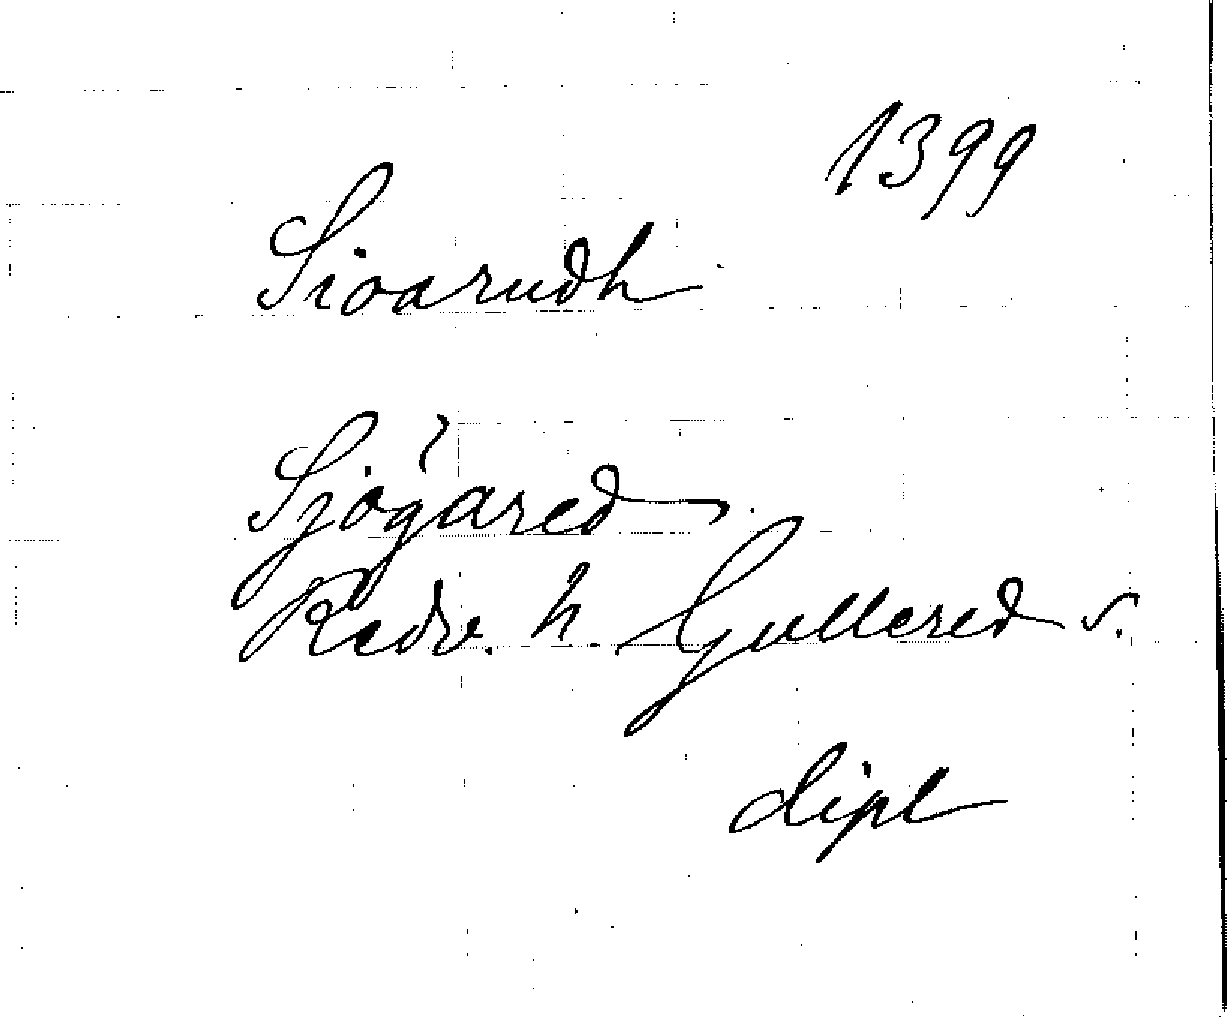 1399
Sioarudh
Sjögared
Redv. h. Gullered s.
dipl